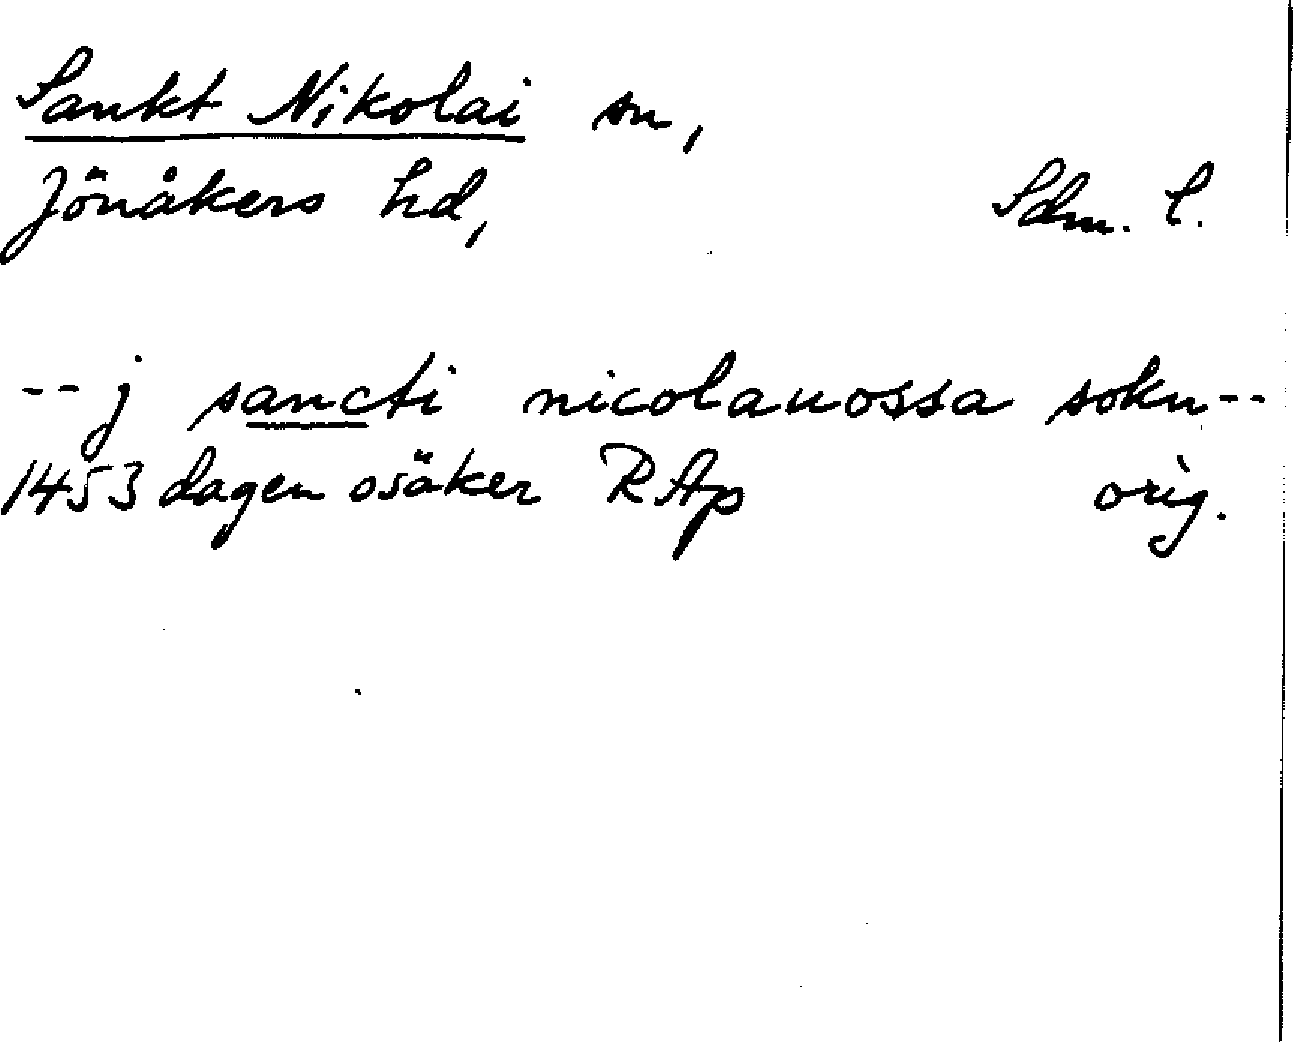 Sankt Nikolai sn,
Jönåkers hd, Sdm. l.
-- j sancti nicolauossa sokn --
1453 dagen osäker RAp orig.